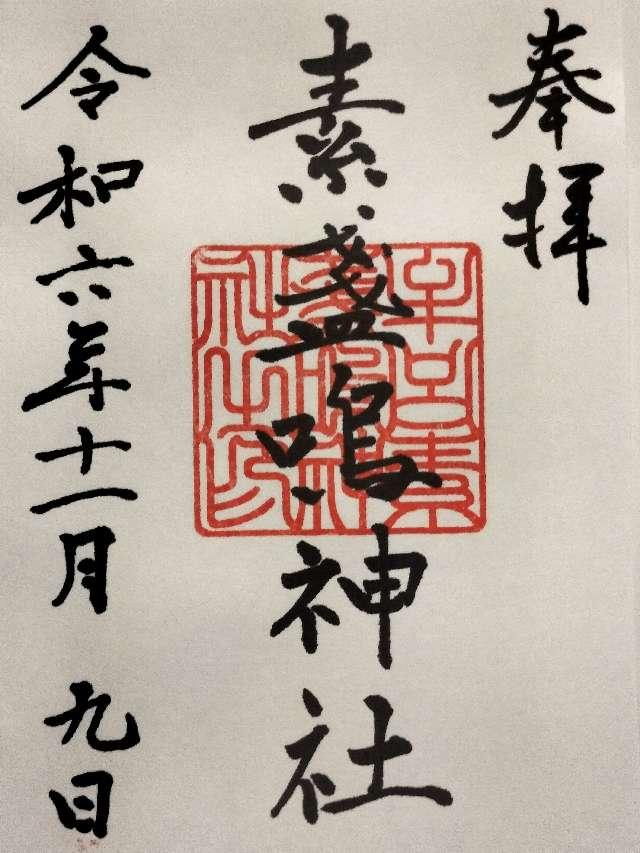 奉拝
素盞嗚神社
令和六年十一月九日